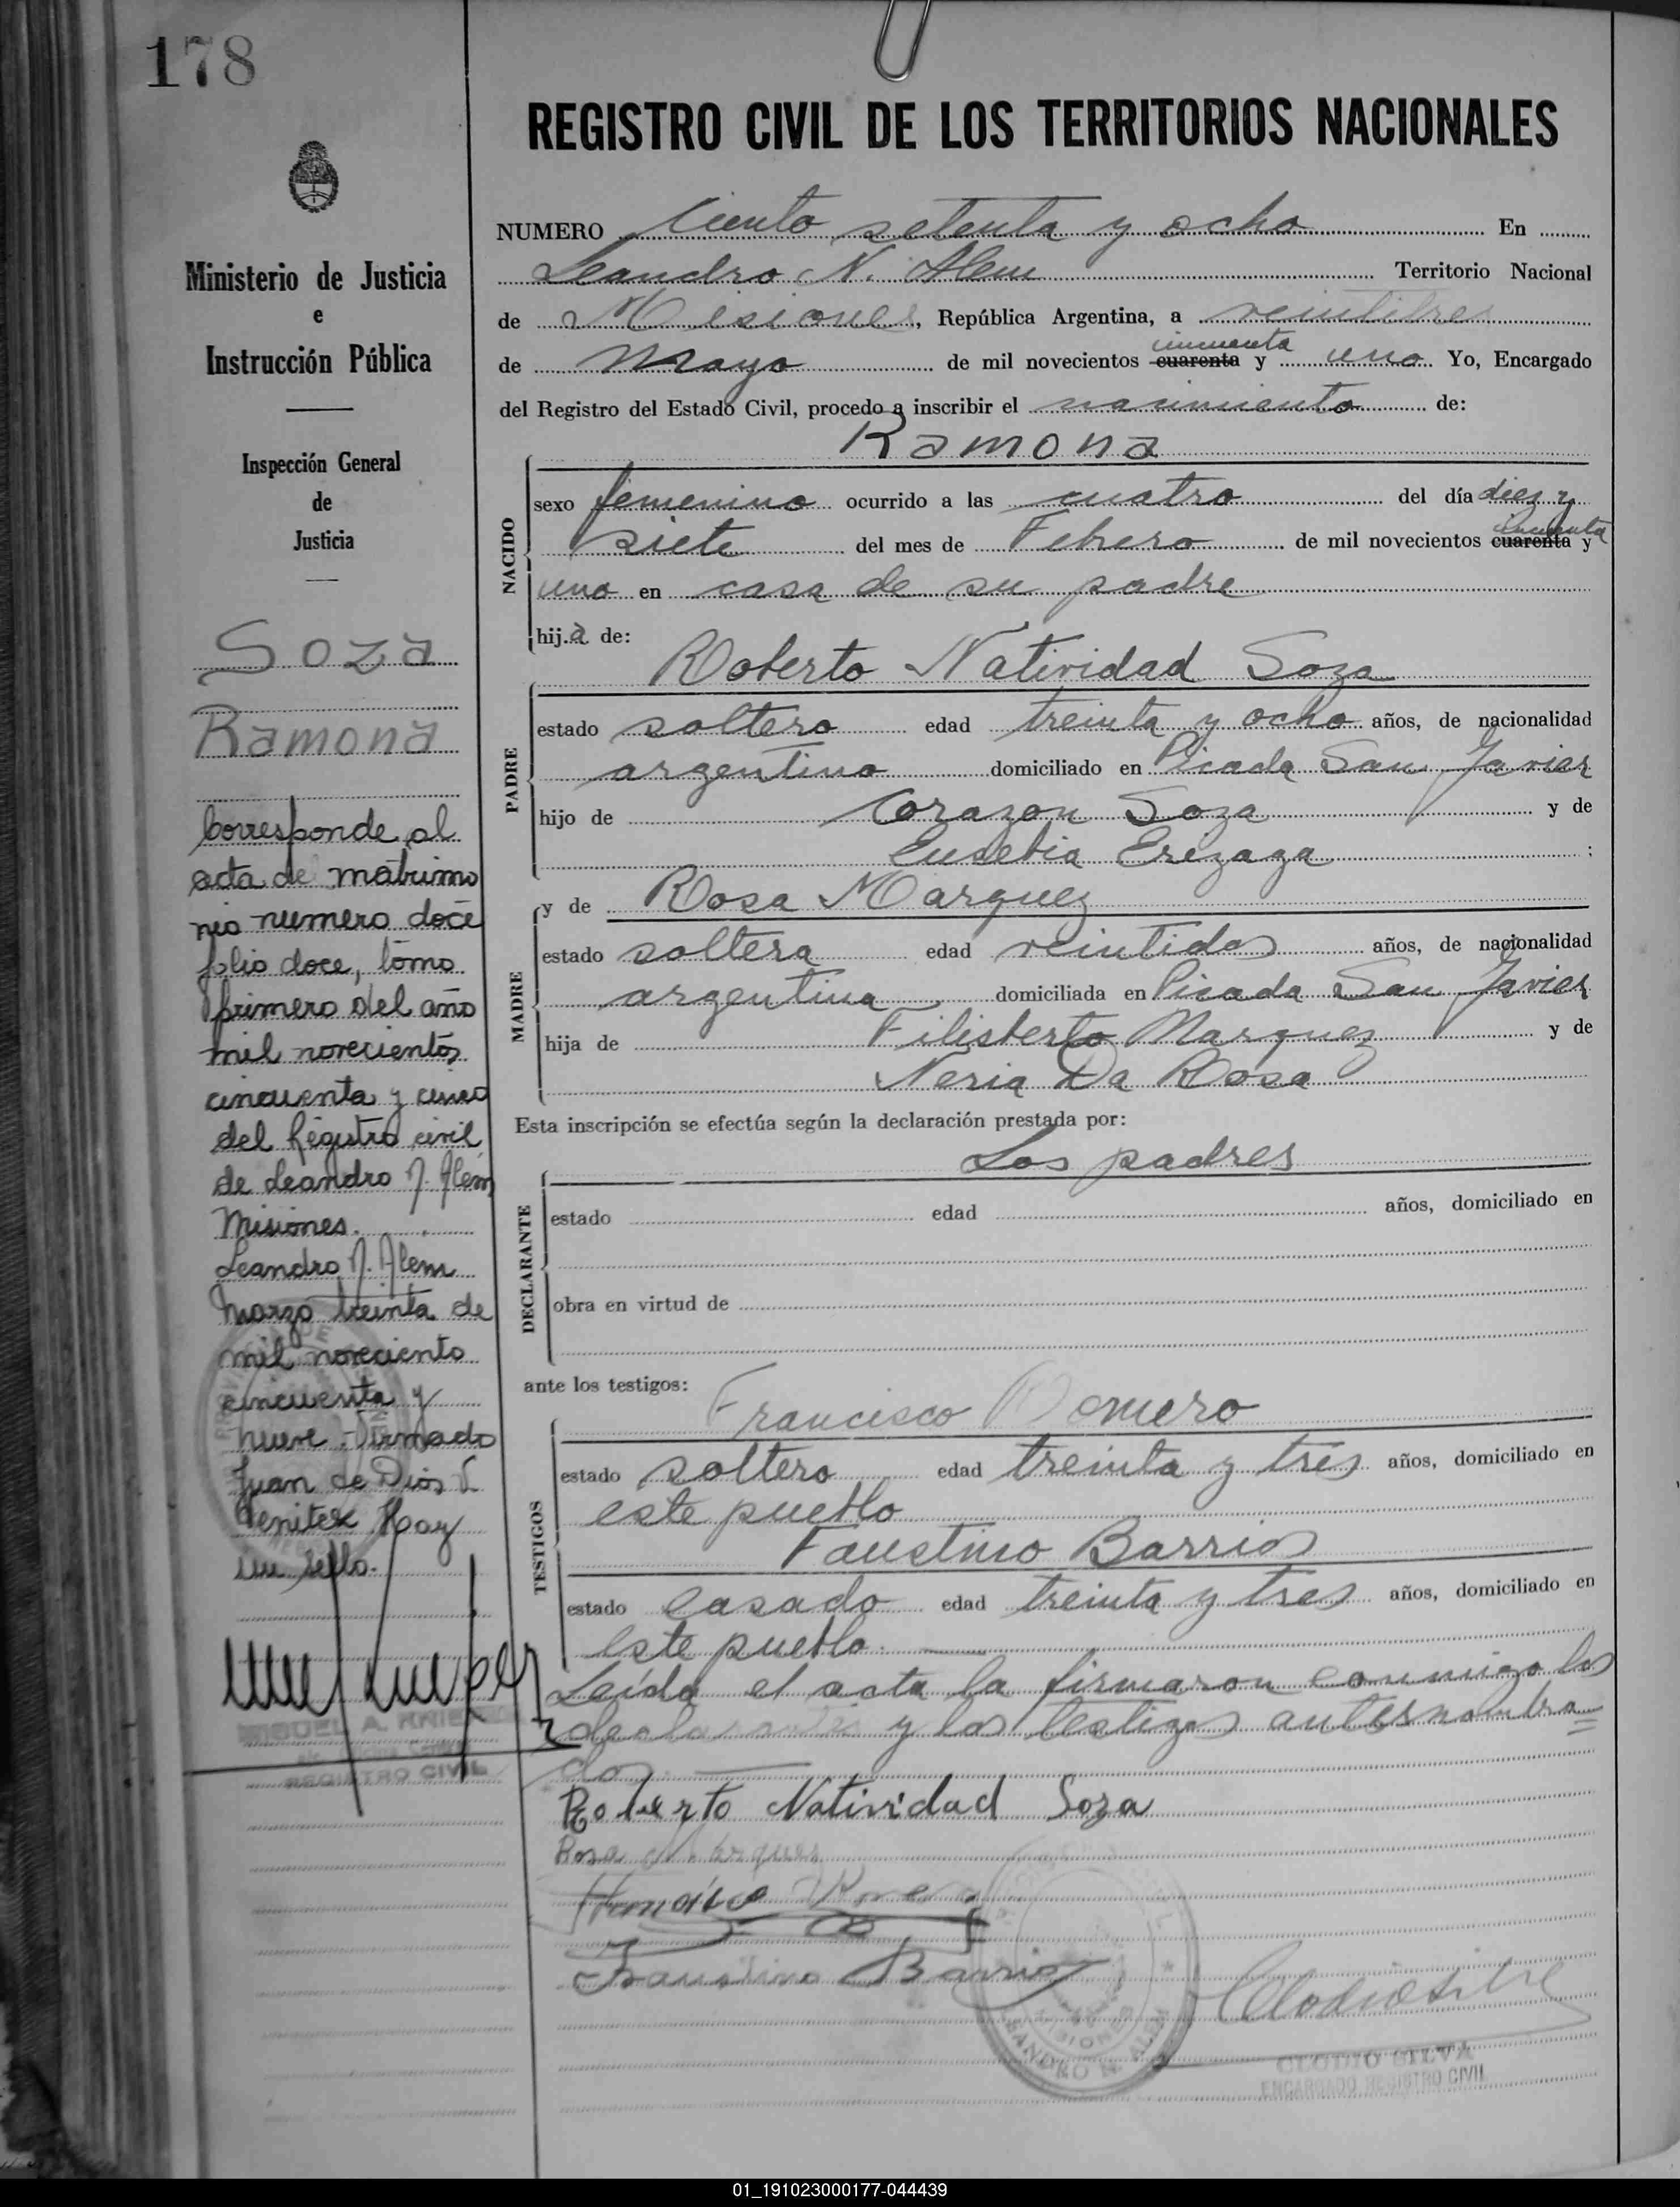 178
Ministerio de Justicia
e
Instrucción Pública
Inspección General
de
Justicia
Soza
Ramona
Corresponde al
acta de matrimo
nio numero doce
folio doce, tomo
primero del año
mil novecientos
cincuenta y cinco
del Registro civil
de Leandro N. Alem
Misiones.
Leandro N. Alem
Marzo treinta de
mil noveciento
cincuenta y
nueve. Firmado
Juan de Dios
Benitez Hay
un sello.
MIGUEL A.
REGISTRO CIVIL
REGISTRO CIVIL DE LOS TERRITORIOS NACIONALES
NUMERO Ciento setenta y ocho En
Leandro N. Alem Territorio Nacional
de Misiones, República Argentina, a veintitres
cincuenta
de Mayo de mil novecientos cuarenta y uno Yo, Encargado
del Registro del Estado Civil, procedo a inscribir el nacimiento de:
Ramona
NACIDO
sexo femenino ocurrido a las cuatro del día diez y
cincuenta
siete del mes de Febrero de mil novecientos cuarenta y
uno en casa de su padre
hija de:
Roberto Natividad Soza
PADRE
estado soltero edad treinta y ocho años, de nacionalidad
argentino domiciliado en Picada San Javier
hijo de Corazon Soza y de
Eusebia Erezaga ;
y de Rosa Marquez
MADRE
estado soltera edad veintidos años, de nacionalidad
argentina domiciliada en Picada San Javier
hija de Filisberto Marquez y de
Neria Da Rosa
Esta inscripción se efectúa según la declaración prestada por:
Los padres
DECLARANTE
estado edad años, domiciliado en
obra en virtud de
ante los testigos:
Francisco Romero
TESTIGOS
estado soltero edad treinta y tres años, domiciliado en
este pueblo
Faustino Barrios
estado casado edad treinta y tres años, domiciliado en
este pueblo.
Leída el acta la firmaron conmigo los
declarantes y los testigos antesnombra=
dos.
Roberto Natividad Soza
Rosa Marques
Faustino Barrios
MISIONES
LEANDRO N. ALEM
CLODIO SILVA
ENCARGADO REGISTRO CIVIL
01_191023000177-044439